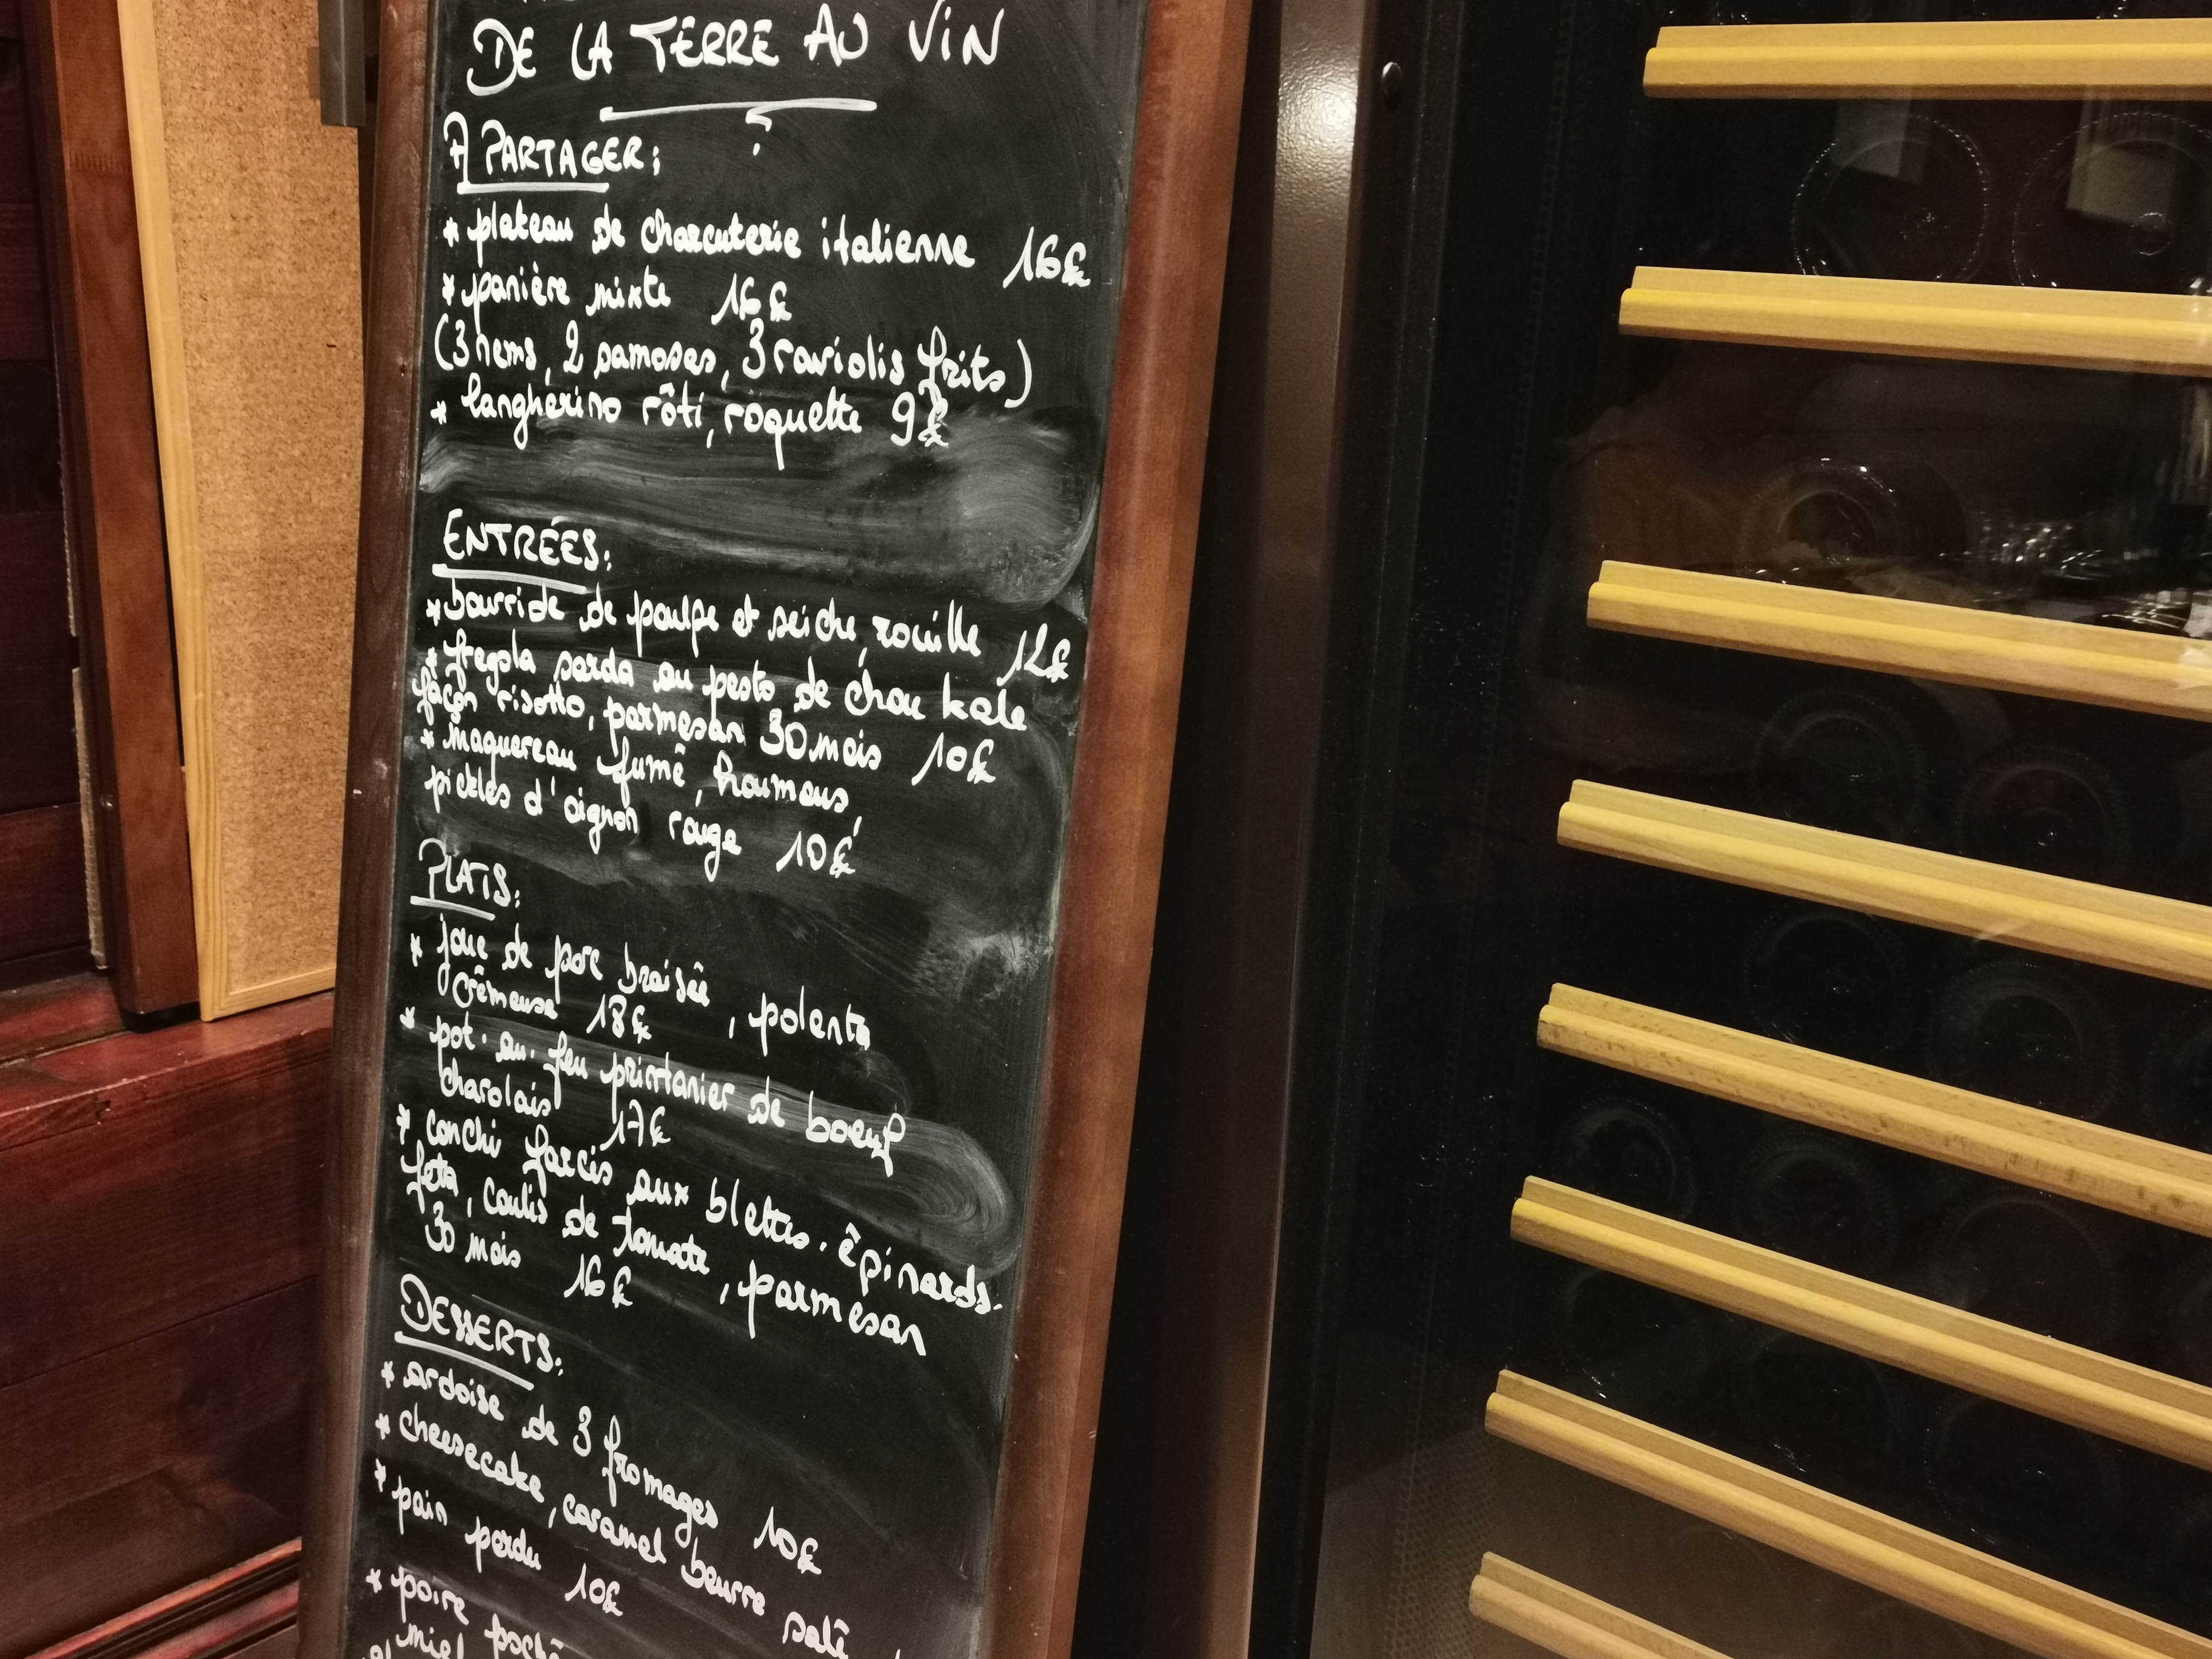 DE LA TERRE AU VIN
A PARTAGER:
* plateau de charcuterie italienne 16€
* panière mixte 16€
(3 nems, 2 samosas, 3 raviolis frits)
* langherino rôti, roquette 9€
ENTRÉES:
* bourride de poulpe et seiche, rouille 12€
* fregola sarda au pesto de chou kale
façon risotto, parmesan 30 mois 10€
* maquereau fumé, houmous,
pickles d'oignon rouge 10€
PLATS:
* joue de porc braisée, polenta
crémeuse 18€
* pot-au-feu printanier de boeuf
charolais 17€
* conchi farcis aux blettes-épinards-
feta, coulis de tomate, parmesan
30 mois 16€
DESSERTS:
* ardoise de 3 fromages 10€
* cheesecake, caramel beurre salé
* pain perdu 10€
* poire poché
miel